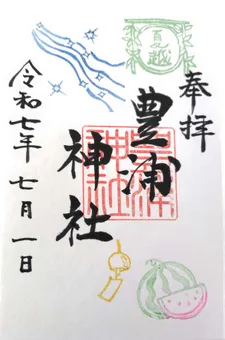 奉拝
夏越
豊浦
神社
令和七年 七月一日